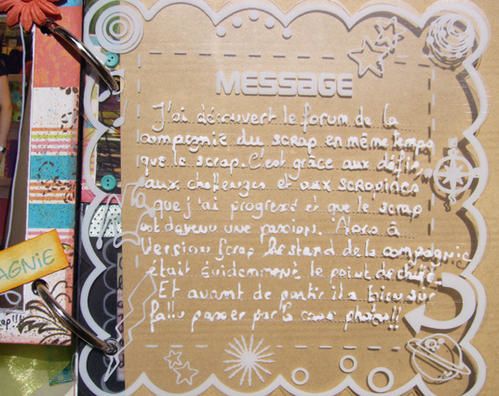 MESSAGE
J'ai découvert le forum de la
compagnie du scrap en même temps
que le scrap. C'est grâce aux défis,
aux challenges et aux scrapines
que j'ai progressé et que le scrap
est devenu une passion. Alors à
Version Scrap le stand de la compagnie
était évidemment le point de chute.
Et avant de partir il a bien sur
fallu passer par la case photo!!
AGNIE